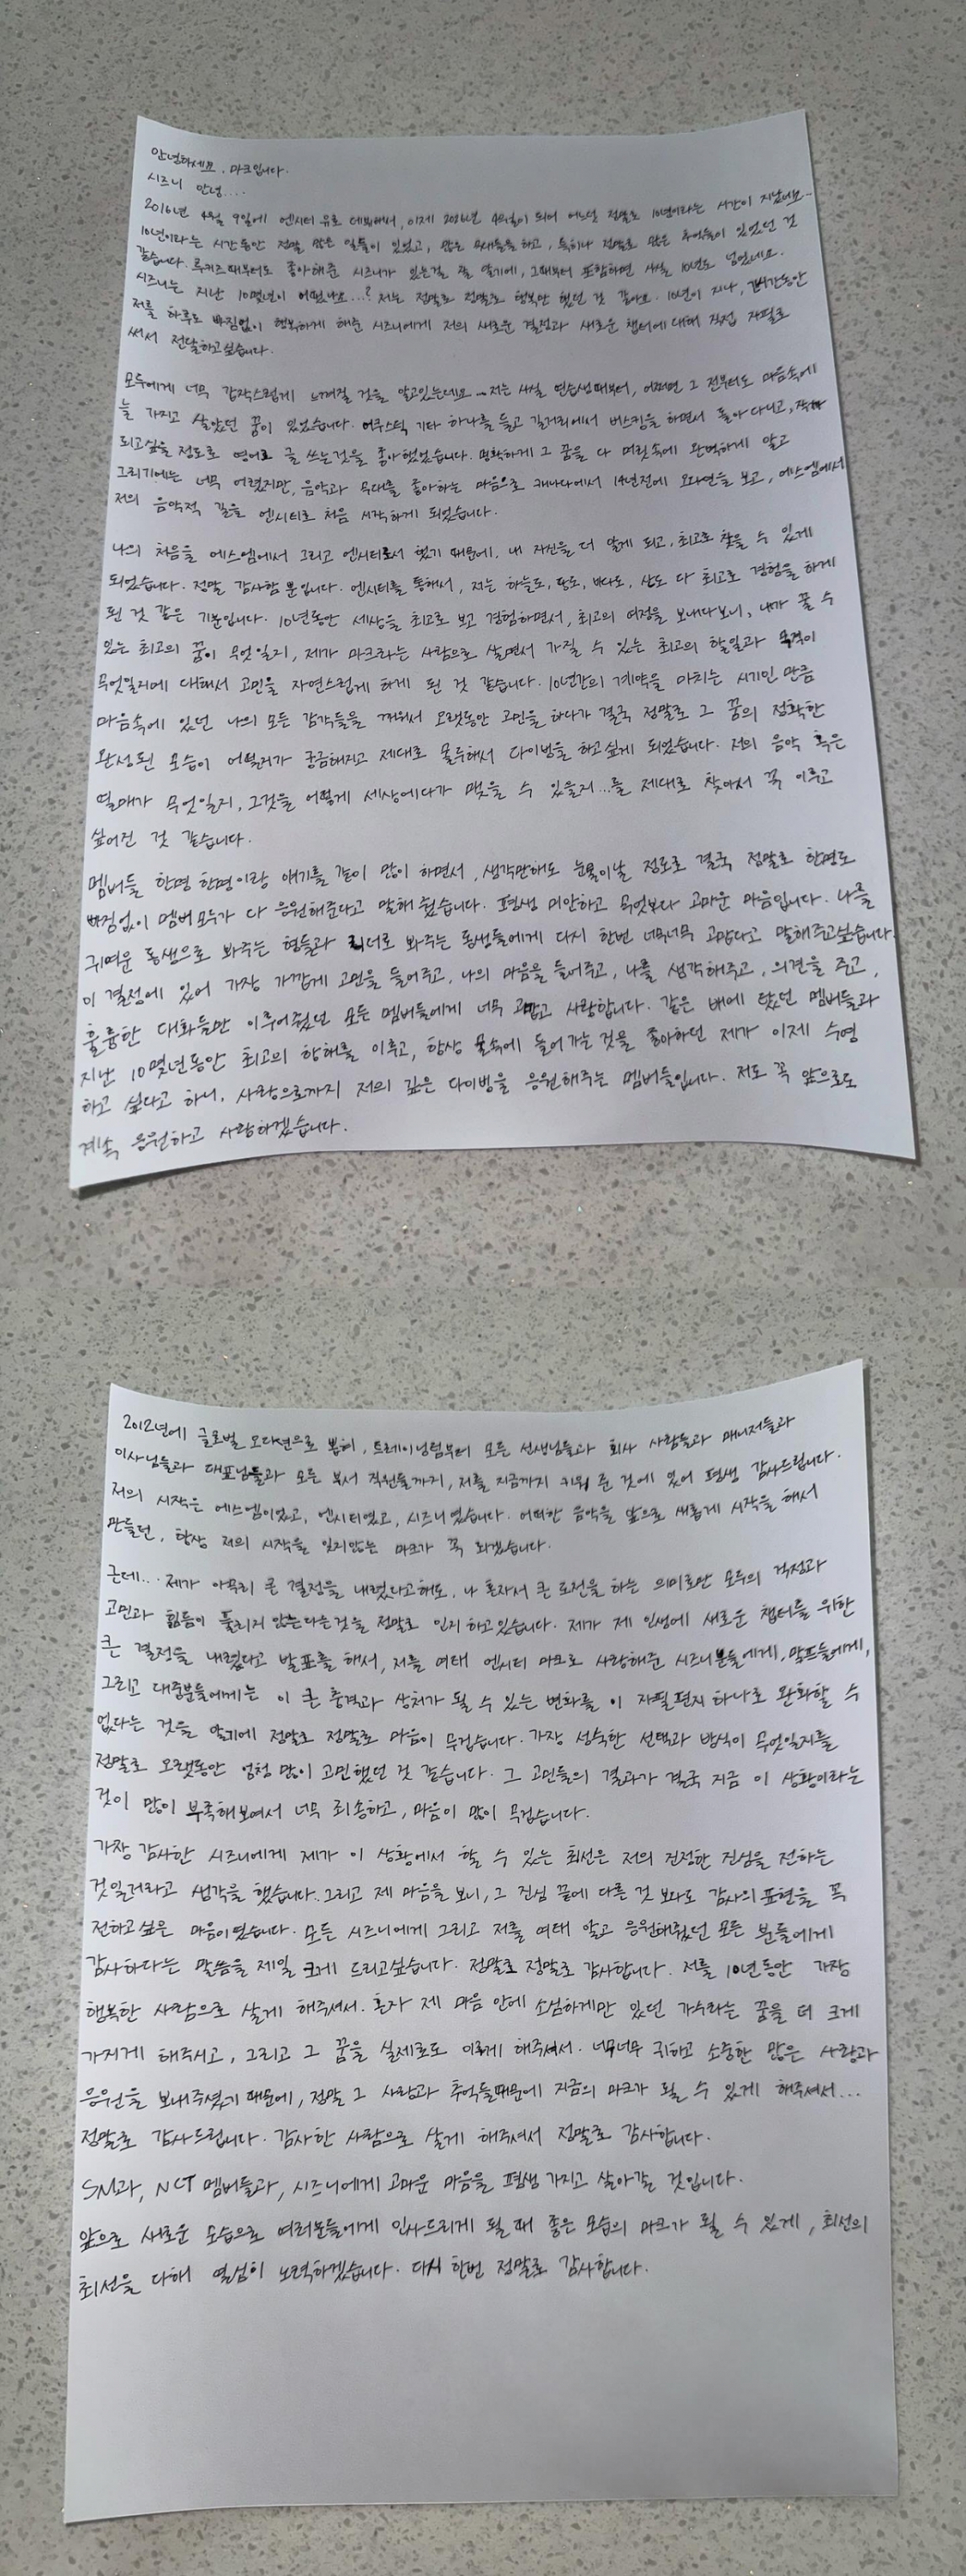 안녕하세요. 마크입니다.
시즈니 안녕....
2016년 4월 9일에 엔시티 유로 데뷔해서, 이제 2026년 4월이 되어 어느덧 정말로 10년이라는 시간이 지났네요..
10년이라는 시간동안 정말 많은 일들이 있었고, 많은 무대들을 하고, 특히나 정말로 많은 추억들이 있었던 것
같습니다. 루키즈때부터도 좋아해준 시즈니가 있는걸 잘 알기에, 그때부터 포함하면 사실 10년도 넘었네요.
시즈니는 지난 10몇년이 어땠나요...? 저는 정말로 정말로 행복만 했던 것 같아요. 10년이 지나, 긴시간동안
저를 하루도 빠짐없이 행복하게 해준 시즈니에게 저의 새로운 결정과 새로운 챕터에 대해 직접 자필로
써서 전달하고싶습니다.
모두에게 너무 갑작스럽게 느껴질 것을 알고있는데요... 저는 사실 연습생때부터, 어쩌면 그 전부터도 마음속에
늘 가지고 살았던 꿈이 있었습니다. 어쿠스틱 기타 하나를 들고 길거리에서 버스킹을 하면서 돌아다니고, 작가
되고싶을 정도로 영어로 글 쓰는것을 좋아했었습니다. 명확하게 그 꿈을 다 머릿속에 완벽하게 알고
그리기에는 너무 어렸지만, 음악과 무대를 좋아하는 마음으로 캐나다에서 14년전에 오디션을 보고, 에스엠에서
저의 음악적 길을 엔시티로 처음 시작하게 되었습니다.
나의 처음을 에스엠에서 그리고 엔시티로서 했기 때문에, 내 자신을 더 알게 되고, 최고로 찾을 수 있게
되었습니다. 정말 감사할 뿐입니다. 엔시티를 통해서, 저는 하늘도, 땅도, 바다도, 산도 다 최고로 경험을 하게
된 것 같은 기분입니다. 10년동안 세상을 최고로 보고 경험하면서, 최고의 여정을 보내다보니, 내가 꿀 수
있는 최고의 꿈이 무엇일지, 제가 마크라는 사람으로 살면서 가질 수 있는 최고의 할일과 목적이
무엇일지에 대해서 고민을 자연스럽게 하게 된 것 같습니다. 10년간의 계약을 마치는 시기인 만큼
마음속에 있던 나의 모든 감각들을 깨워서 오랫동안 고민을 하다가 결국 정말로 그 꿈의 정확한
완성된 모습이 어떨지가 궁금해지고 제대로 몰두해서 다이빙을 하고싶게 되었습니다. 저의 음악 혹은
열매가 무엇일지, 그것을 어떻게 세상에다가 맺을 수 있을지...를 제대로 찾아서 꼭 이루고
싶어진 것 같습니다.
멤버들 한명 한명이랑 얘기를 같이 많이 하면서, 생각만해도 눈물이날 정도로 결국 정말로 한명도
빠짐없이 멤버 모두가 다 응원해준다고 말해줬습니다. 평생 미안하고 무엇보다 고마운 마음입니다. 나를
귀여운 동생으로 봐주는 형들과 리더로 봐주는 동생들에게 다시 한번 너무너무 고맙다고 말해주고싶습니다.
이 결정에 있어 가장 가깝게 고민을 들어주고, 나의 마음을 들어주고, 나를 생각해주고, 의견을 주고,
훌륭한 대화들만 이루어줬던 모든 멤버들에게 너무 고맙고 사랑합니다. 같은 배에 탔던 멤버들과
지난 10몇년동안 최고의 항해를 이루고, 항상 물속에 들어가는 것을 좋아하던 제가 이제 수영
하고 싶다고 하니, 사랑으로까지 저의 깊은 다이빙을 응원해주는 멤버들입니다. 저도 꼭 앞으로도
계속 응원하고 사랑하겠습니다.
2012년에 글로벌 오디션으로 뽑혀, 트레이닝팀부터 모든 선생님들과 회사 사람들과 매니저들과
이사님들과 대표님들과 모든 부서 직원들까지, 저를 지금까지 키워 준 것에 있어 평생 감사드립니다.
저의 시작은 에스엠이었고, 엔시티였고, 시즈니였습니다. 어떠한 음악을 앞으로 새롭게 시작을 해서
만들던, 항상 저의 시작을 잊지않는 마크가 꼭 되겠습니다.
근데... 제가 아무리 큰 결정을 내렸다고해도, 나 혼자서 큰 도전을 하는 의미로만 모두의 걱정과
고민과 힘듦이 풀리지 않는다는것을 정말로 인지하고있습니다. 제가 제 인생에 새로운 챕터를 위한
큰 결정을 내렸다고 발표를 해서, 저를 여태 엔시티 마크로 사랑해준 시즈니분들에게, 맠프들에게,
그리고 대중분들에게는 이 큰 충격과 상처가 될 수 있는 변화를 이 자필편지 하나로 완화할 수
없다는 것을 알기에 정말로 정말로 마음이 무겁습니다. 가장 성숙한 선택과 방식이 무엇일지를
정말로 오랫동안 엄청 많이 고민했던 것 같습니다. 그 고민들의 결과가 결국 지금 이 상황이라는
것이 많이 부족해보여서 너무 죄송하고, 마음이 많이 무겁습니다.
가장 감사한 시즈니에게 제가 이 상황에서 할 수 있는 최선은 저의 진정한 진심을 전하는
것일거라고 생각을 했습니다. 그리고 제 마음을 보니, 그 진심 끝에 다른 것 보다도 감사의 표현을 꼭
전하고싶은 마음이였습니다. 모든 시즈니에게 그리고 저를 여태 알고 응원해줬던 모든 분들에게
감사하다는 말씀을 제일 크게 드리고싶습니다. 정말로 정말로 감사합니다. 저를 10년동안 가장
행복한 사람으로 살게 해주셔서. 혼자 제 마음 안에 소심하게만 있던 가수라는 꿈을 더 크게
가지게 해주시고, 그리고 그 꿈을 실제로도 이루게 해주셔서. 너무너무 귀하고 소중한 많은 사랑과
응원을 보내주셨기 때문에, 정말 그 사랑과 추억들때문에 지금의 마크가 될 수 있게 해주셔서...
정말로 감사드립니다. 감사한 사람으로 살게 해주셔서 정말로 감사합니다.
SM과, NCT 멤버들과, 시즈니에게 고마운 마음을 평생 가지고 살아갈 것입니다.
앞으로 새로운 모습으로 여러분들에게 인사드리게 될 때 좋은 모습의 마크가 될 수 있게, 최선의
최선을 다해 열심히 노력하겠습니다. 다시 한번 정말로 감사합니다.